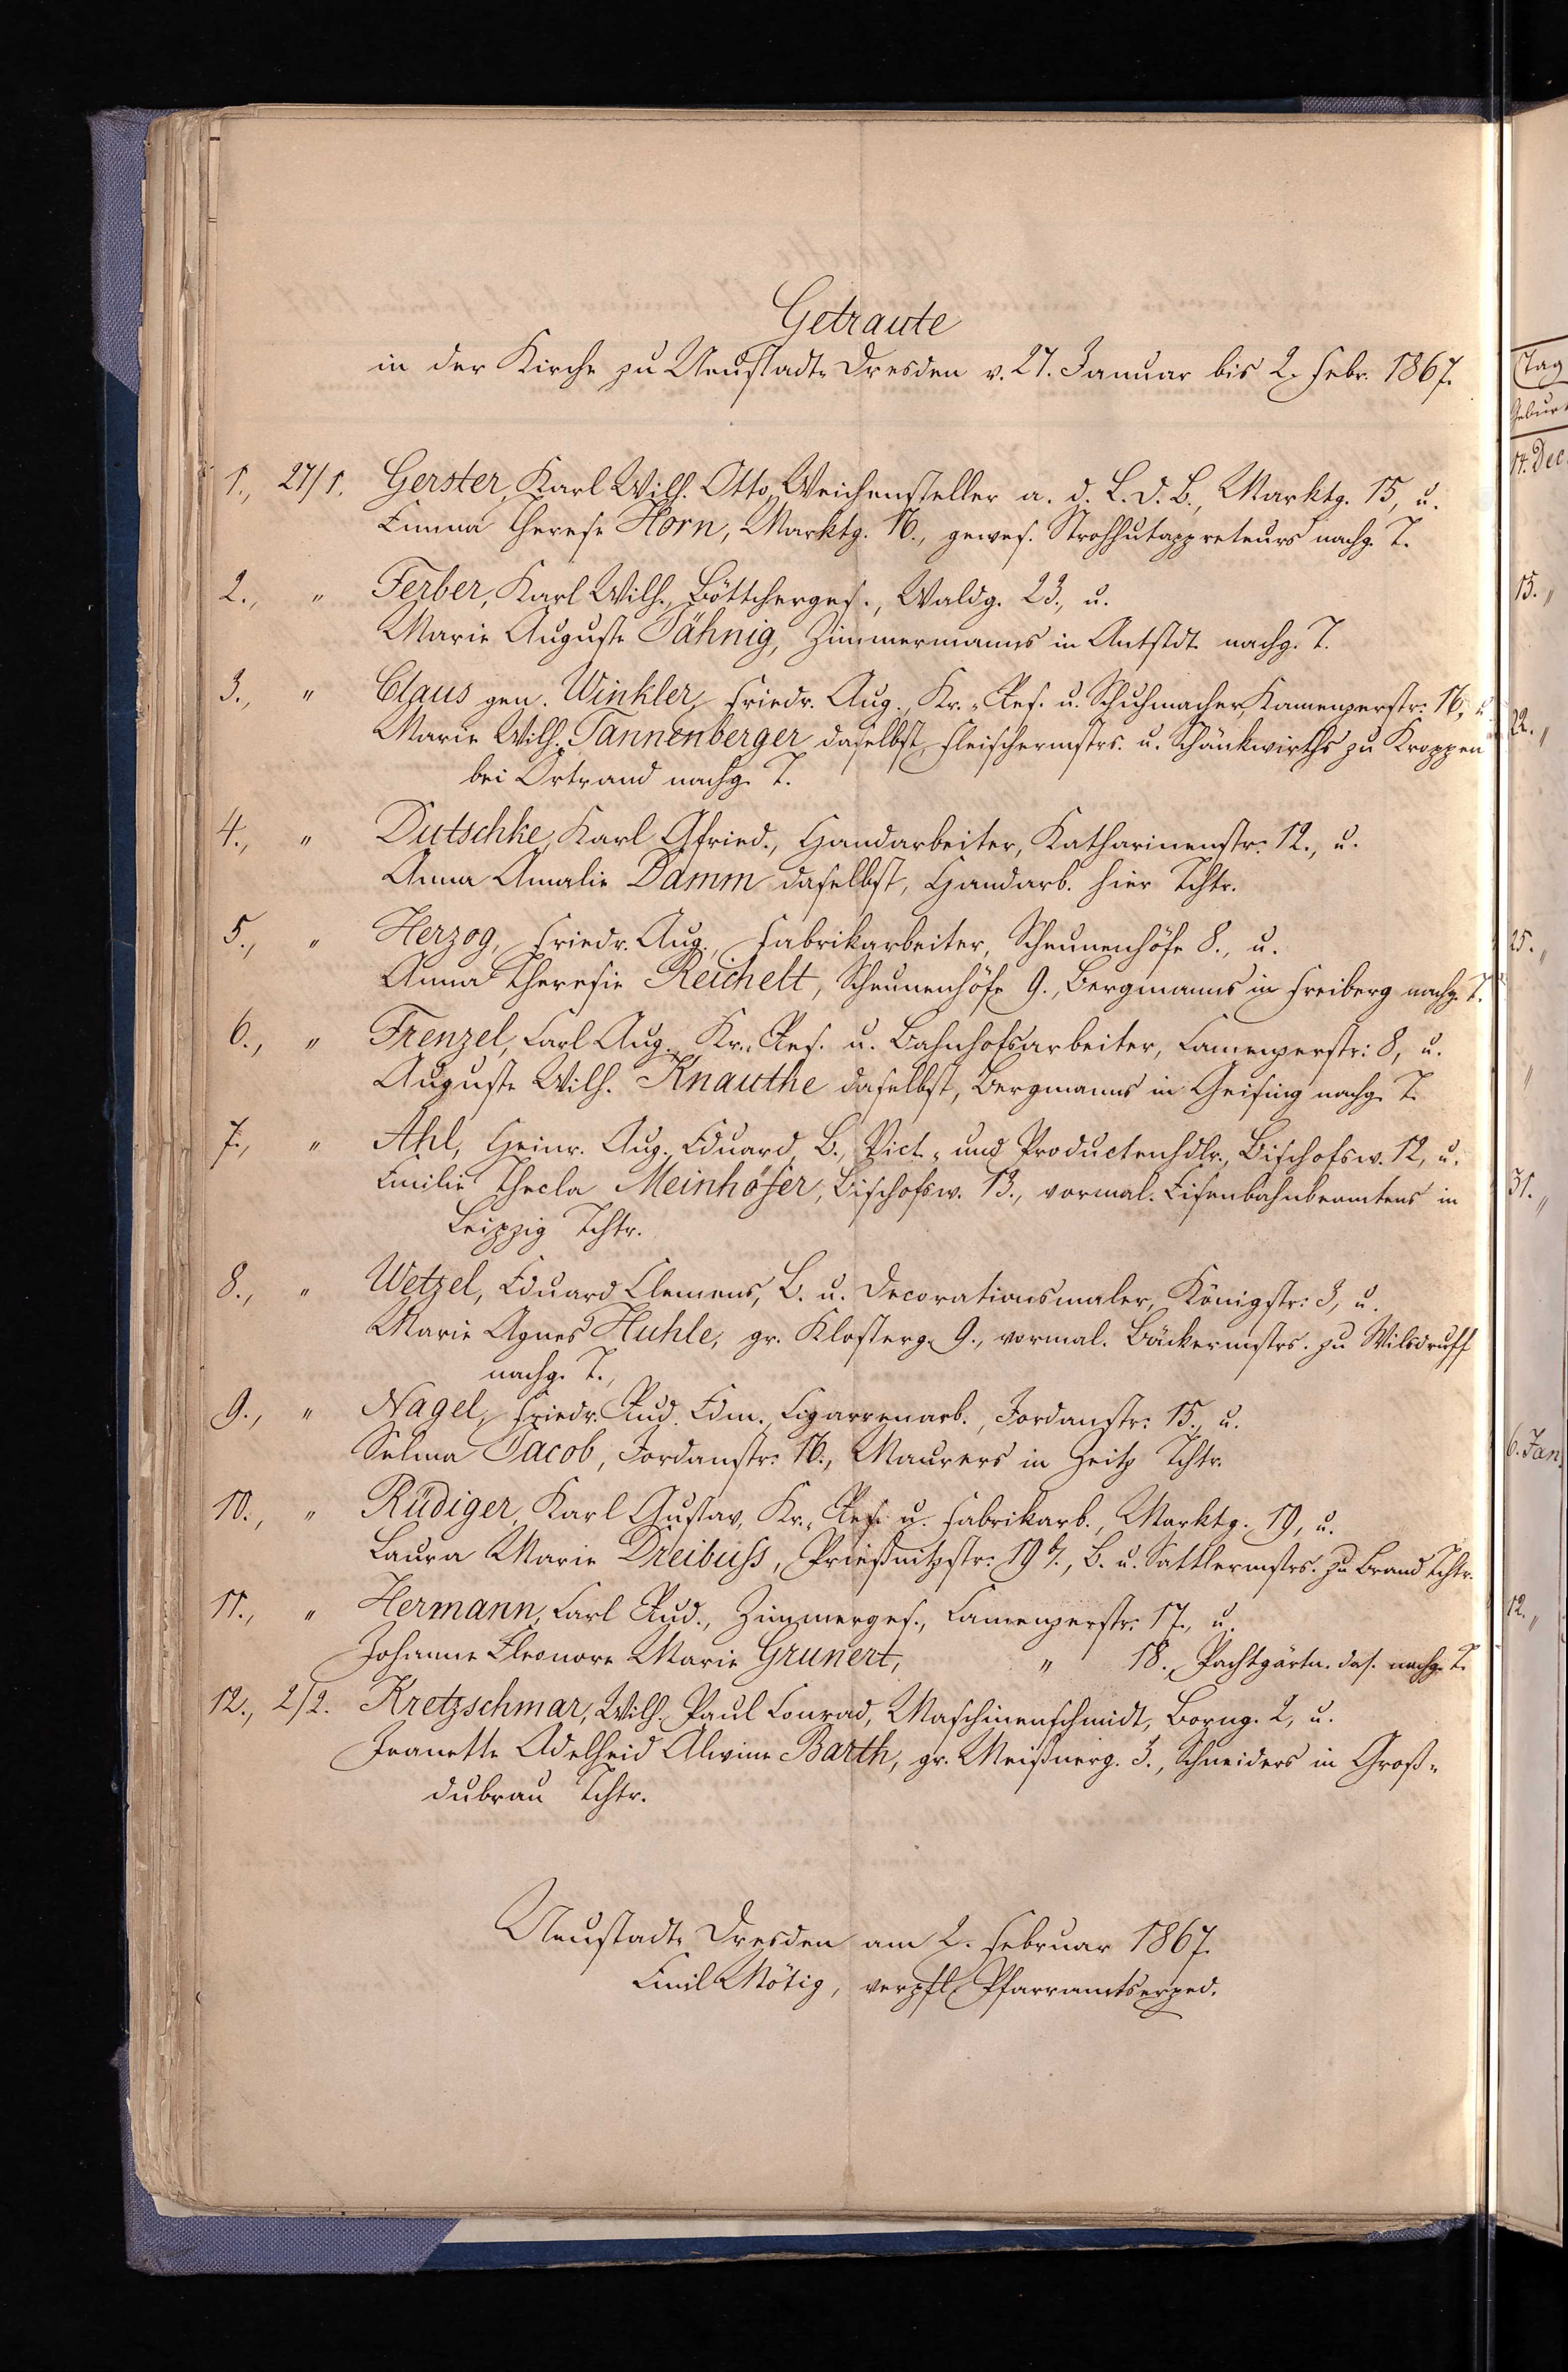 Getraute
in der Kirche zu Neustadt-Dresden v. 27. Januar bis 2. Febr. 1867.
1., 27/1. Gerster, Karl Wilh. Otto, Weichensteller a. d. L. D. B., Marktg. 15, u.
Emma Therese Horn, Marktg. 16., gewes. Strohhutappreteurs nachg. T.
2., " Ferber, Karl Wilh., Böttcherges., Waldg. 23., u.
Marie Auguste Jähnig, Zimmermanns in Antstdt. nachg. T.
3., " Claus gen. Winkler, Friedr. Aug., Kr.-Res. u. Schuhmacher, Kamenzerstr: 16, u.
Marie Wilh. Tannenberger daselbst, Fleischermstrs. u. Schänkwirths zu Kroppen
bei Ortrand nachg. T.
4., " Dutschke, Karl Gfried., Handarbeiter, Katharinenstr: 12., u.
Anna Amalie Damm daselbst, Handarb. hier Tchtr.
5., " Herzog, Friedr. Aug., Fabrikarbeiter, Scheunenhöfe 8., u.
Anna Theresie Reichelt, Scheunenhöfe 9., Bergmanns in Freiberg nachg. T.
6., " Frenzel, Carl Aug., Kr.-Res. u. Bahnhofsarbeiter, Camenzerstr: 8, u.
Auguste Wilh. Knauthe daselbst, Bergmanns in Geising nachg. T.
7., " Ahl, Heinr. Aug. Eduard, B., Vict.- und Productenhdlr., Bischofsw. 12, u.
Emilie Thecla Meinhöfer, Bischofsw. 13., vormal. Eisenbahnbeamtens in
Leipzig Tchtr.
8., " Wetzel, Eduard Clemens, B. u. Decorationsmaler, Königstr: 3, u.
Marie Agnes Huhle, gr. Klosterg. 9., vormal. Bäckermstrs. zu Wilsdruff
nachg. T.,
9., " Nagel, Friedr. Rud. Edm. Cigarrenarb., Jordanstr: 15., u.
Selma Jacob, Jordanstr: 16., Maurers in Zeitz Tchtr.
10., " Rüdiger, Karl Gustav, Kr.-Res. u. Fabrikarb., Marktg. 19, u.
Laura Marie Dreibuss, Prießnitzstr: 19 b., B. u. Sattlermstrs. zu Brand Tchtr.
11., " Hermann, Carl Rud., Zimmerges., Camenzerstr: 17., u.
Johanne Eleonore Marie Grunert, " 18. Pachtgärtn. das. nachg. T.
12., 2/2. Kretzschmar, Wilh. Paul Conrad, Maschinenschmidt, Borng. 2, u.
Jeanette Adelheid Alwine Barth, gr. Meißnerg. 3., Schneiders in Groß-
dubrau Tchtr.
Neustadt-Dresden am 2. Februar 1867.
Emil Nötig, verpfl. Pfarramtsexped.
Tag
Geburt
14. Dec
15. "
22. "
25. "
"
31. "
6. Jan.
12. "